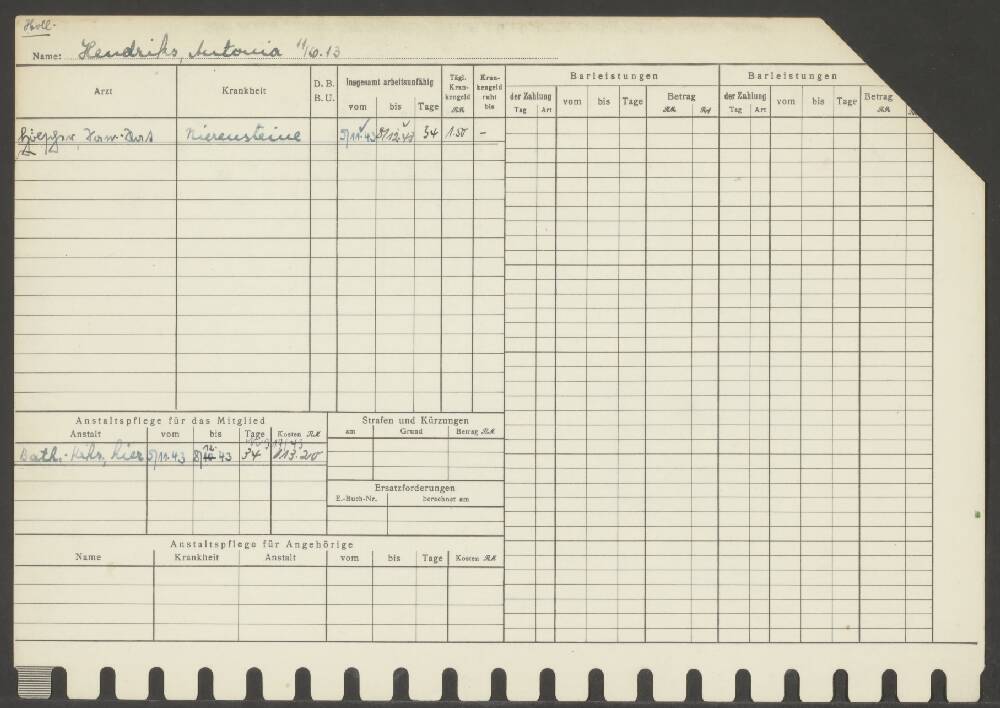 Holl.
Name: Hendriks, Antonia 11/10.13
Arzt Krankheit D. B. B. U. Insgesamt arbeitsunfähig vom bis Tage Tägl. Krankengeld RM. Krankengeld ruht bis
Barleistungen der Zahlung Tag Art vom bis Tage Betrag RM. Rpf
Barleistungen der Zahlung Tag Art vom bis Tage Betrag RM.
Nierensteine 5/11.43 8/12.43 34 1.50 –
Anstaltspflege für das Mitglied
Anstalt vom bis Tage Kosten RM.
Kath. hier 5/11.43 8/12.43 34 113.20
Strafen und Kürzungen
am Grund Betrag RM.
Ersatzforderungen
E.-Buch-Nr. berechnet am
Anstaltspflege für Angehörige
Name Krankheit Anstalt vom bis Tage Kosten RM.